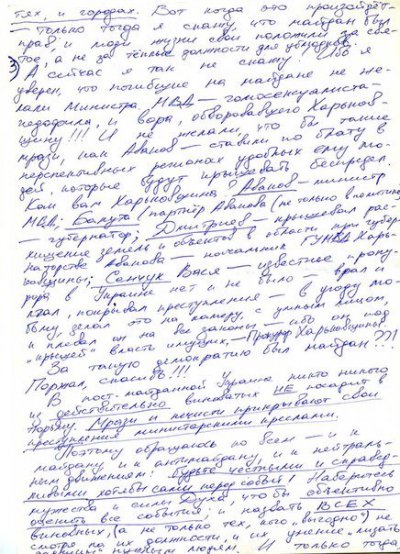 тях, и городах. Вот когда это произойдёт —
— только тогда я скажу, что майдан был
прав, и люди жизни свои положили за свя-
тое, а не за тёплые должности для ублюдков.
3) А сейчас я так не скажу! Ибо я
уверен, что погибшие на майдане не же-
лали Министра МВД — гомосексуалиста-
педофила, и вора, обворовавшего Харьков-
щину!!! И не желали, что бы такие
мрази, как Аваков — ставили по блату в
перспективных регионах удобных ему лю-
дей, которые будут крышевать беспредел.
Как вам Харьковщина? Аваков — министр
МВД; Балута (партнёр Авакова (не только в политике)
— губернатор; Дмитриев — крышевал рас-
хищение земель и объектов в области при губер-
наторстве Авакова — начальник ГУМВД Харь-
ковщины; Сенчук Вася — известное, проку-
рура в Украине нет и не было — врал и
лгал, покрывал преступления — в угоду
было, делал это на камеру, с умным лицом,
и плевал он на все законы — ибо он под
"крышей" власть имущих, — Прокурор Харьковщины!
За такую демократию был майдан???!
Поржал, спасибо!!!
В пост-майданной Украине никто никого
и действительно виноватых НЕ посадит в
тюрьму. Мрази и нечисти прикрывают свои
преступления министерскими креслами.
Поэтому обращаюсь ко всем — и к
майдану и к антимайдану, и к нейтраль-
ным движениям: будьте честными и справед-
ливыми хотя бы сами перед собой! Наберитесь
мужества и силы Духа, что бы объективно
оценить все события, и назвать ВСЕХ
виновных, (а не только тех, кого "выгодно") не
смотря на их должности, и их умение лизать
нужным людям. И только тогда